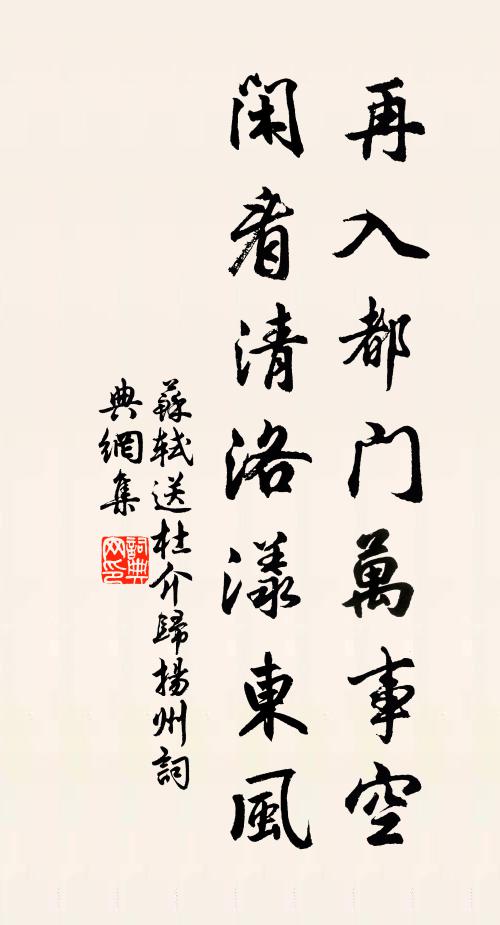 再入都門萬事空
閑看清洛漾東風
蘇軾送杜介歸揚州詞
典網集
詞典網印